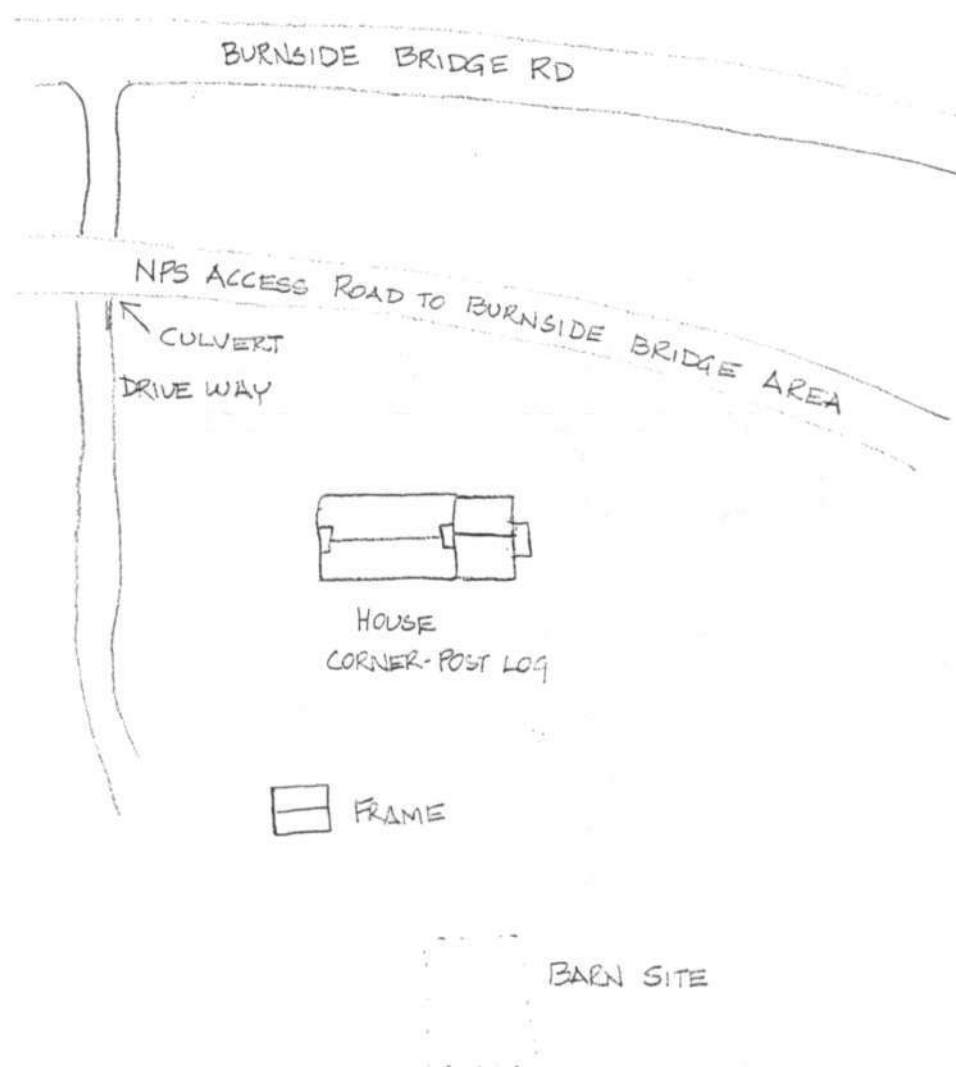 BURNSIDE BRIDGE RD
NPS ACCESS ROAD TO BURNSIDE BRIDGE AREA
CULVERT
DRIVE WAY
HOUSE
CORNER-POST LOG
FRAME
BARN SITE